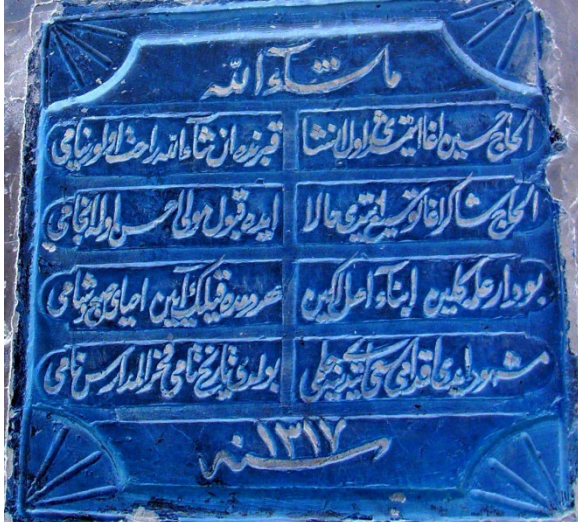 ما شآء الله
الحاج حسين اغا ايتمش اولا انشا قبرنده ان شآء الله راحت اولور نيامى
الحاج شاكر اغا توسيع ايتدى حالا ايده قبول مولى حسن اوله انجامى
بو دار علمه كلين ابنآء اهل دين هر دمده قيلك آيين احياى صبح و شامى
مشهود ايدى اقدامى سعى بولدى تاريخ نامى فخر المدارس نامى
سنه ١٣١٧